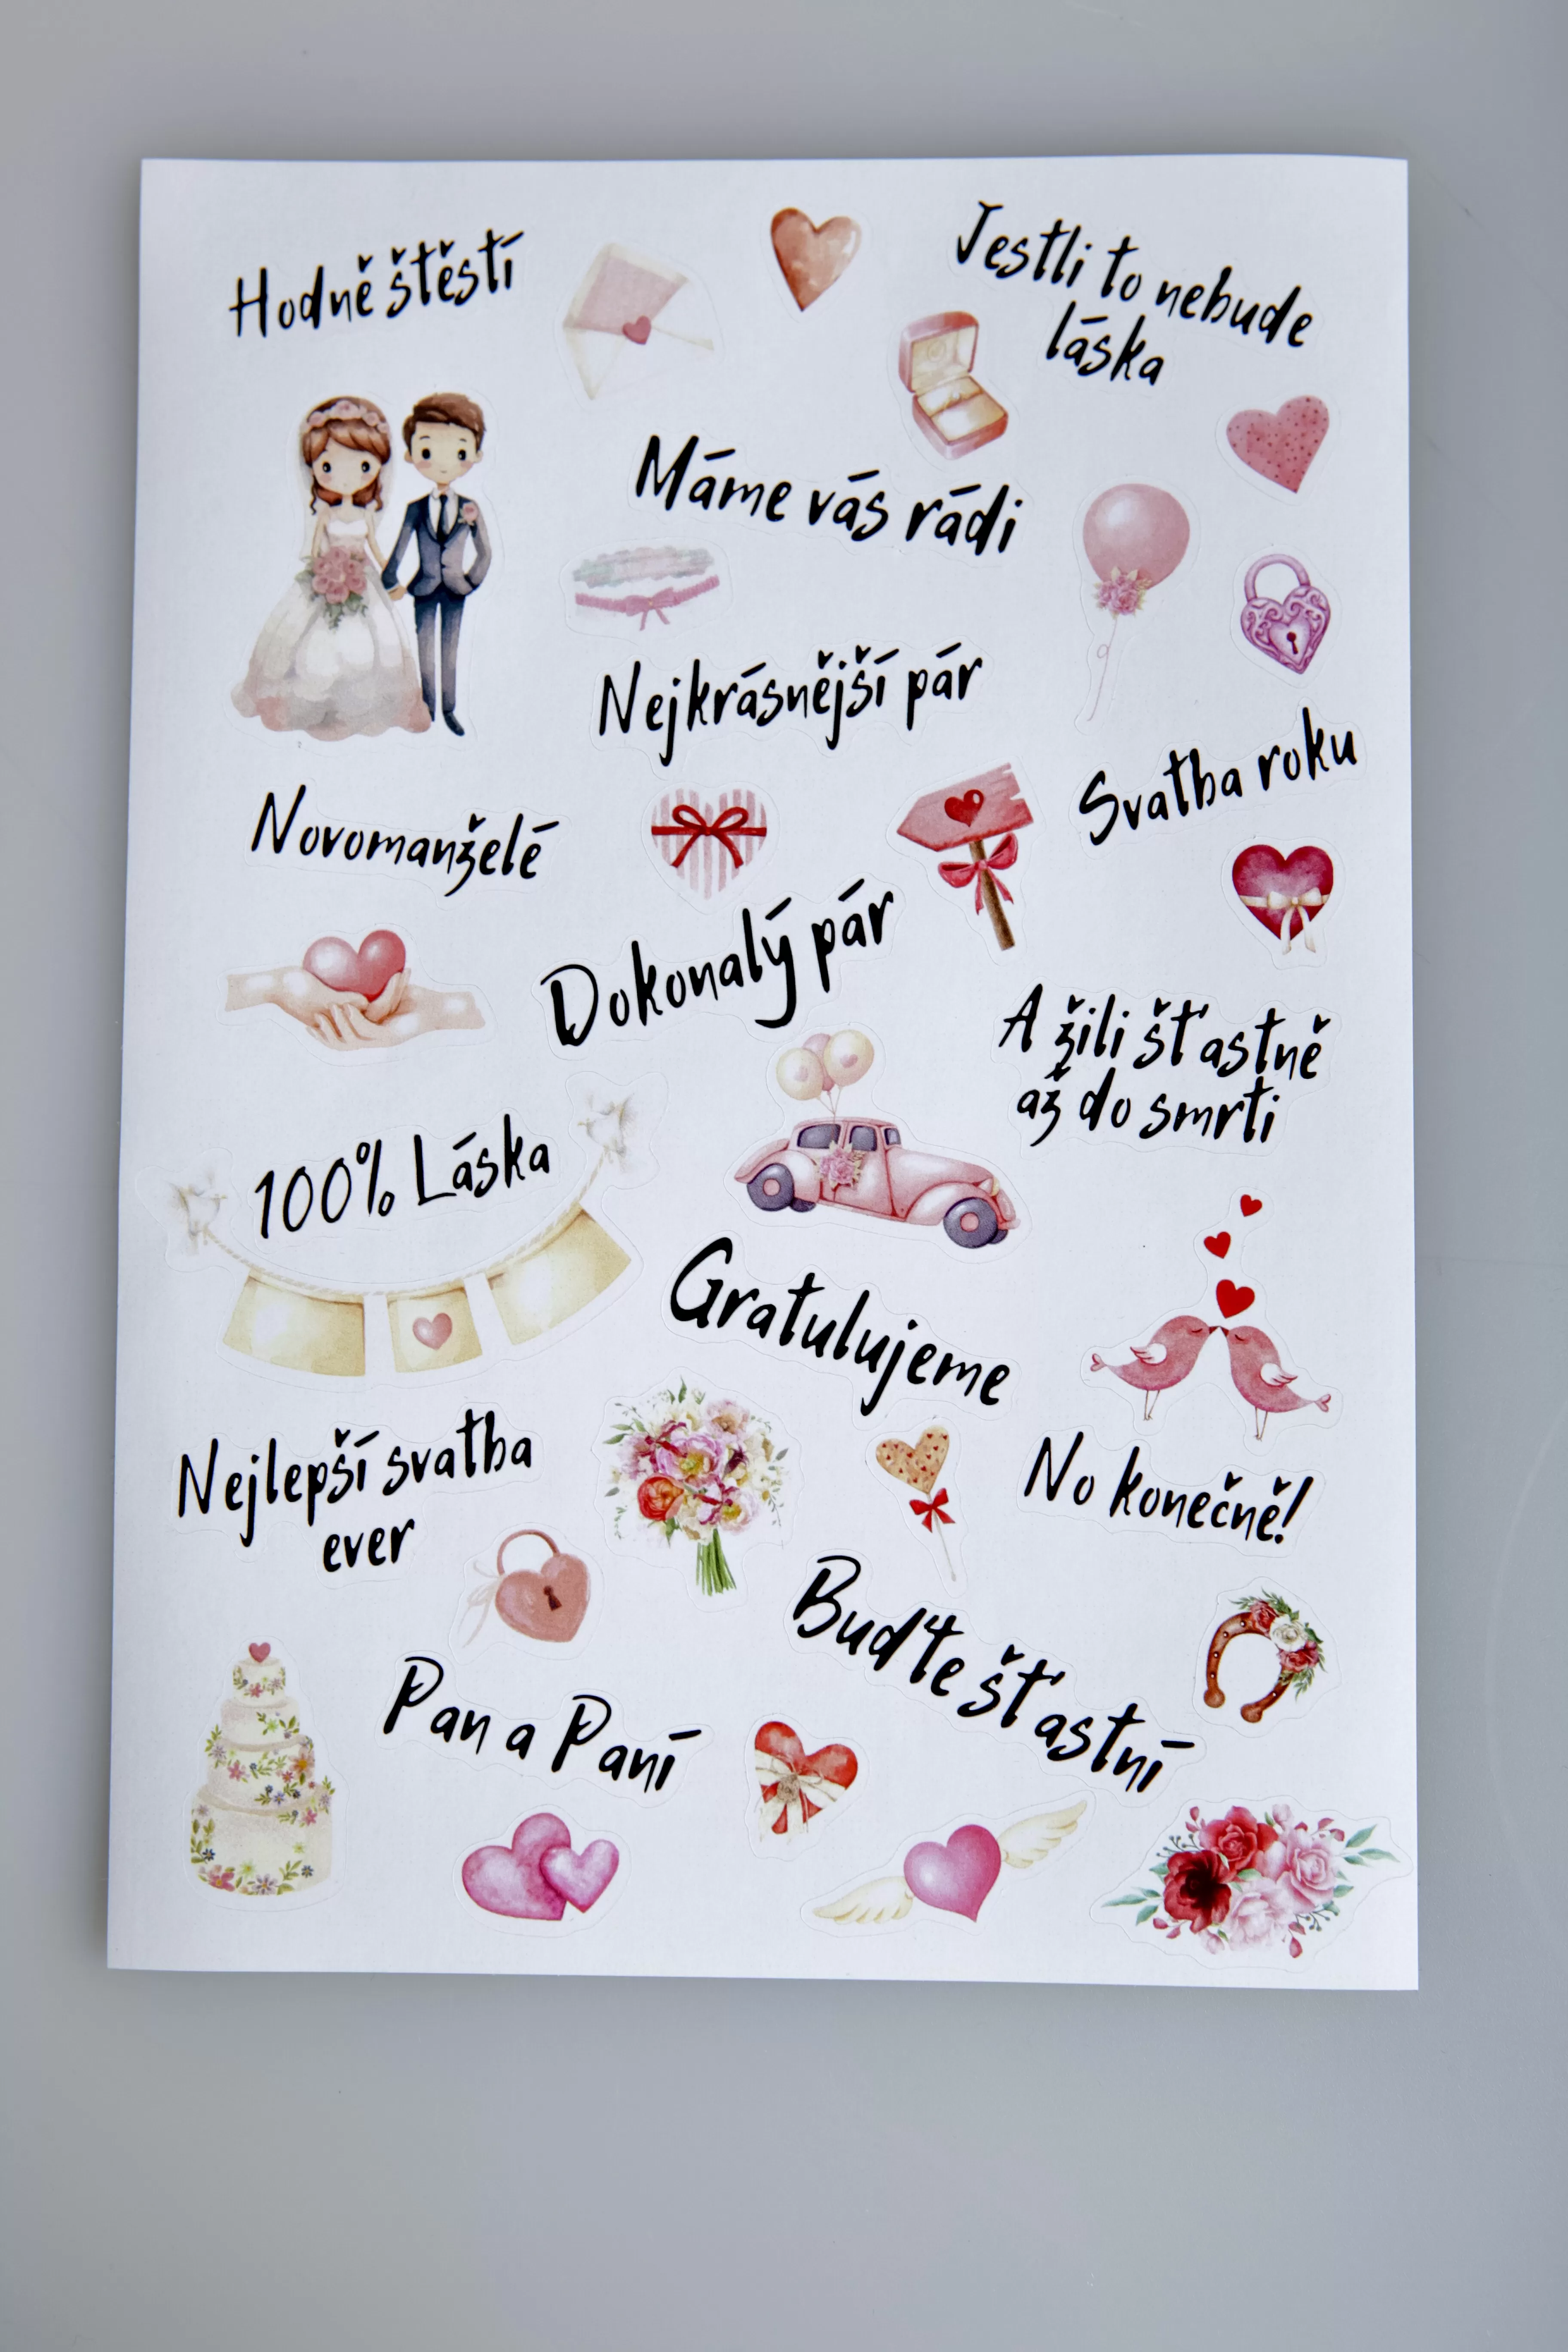 Hodně štěstí
Jestli to nebude
láska
Máme vás rádi
Nejkrásnější pár
Svatba roku
Novomanželé
Dokonalý pár
A žili šťastně
až do smrti
100% Láska
Gratulujeme
Nejlepší svatba
ever
No konečně!
Buďte šťastní
Pan a Paní